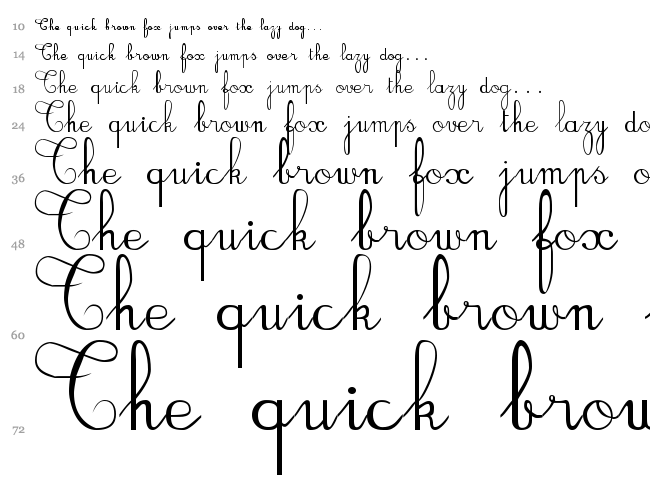 10 The quick brown fox jumps over the lazy dog...
14 The quick brown fox jumps over the lazy dog...
18 The quick brown fox jumps over the lazy dog...
24 The quick brown fox jumps over the lazy do
36 The quick brown fox jumps o
48 The quick brown fox
60 The quick brown
72 The quick brow